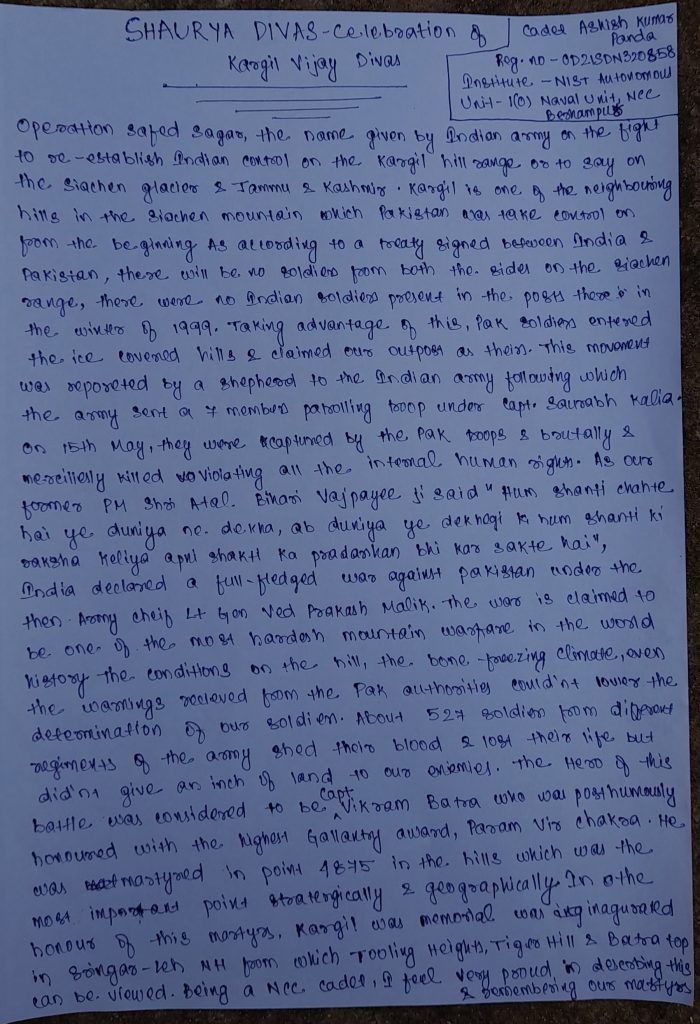 SHAURYA DIVAS - Celebration of
Kargil Vijay Divas
Cadet Ashish Kumar
Panda
Reg. no - OD21SDN320858
Institute - NIST Autonomous
Unit - 1(O) Naval Unit, NCC
Berhampur
Operation safed sagar, the name given by Indian army on the fight
to re-establish Indian control on the Kargil hill range or to say on
the Siachen glacier & Jammu & Kashmir. Kargil is one of the neighbouring
hills in the Siachen mountain which Pakistan was take control on
from the beginning As according to a treaty signed between India &
Pakistan, there will be no soldiers from both the sides on the siachen
range, there were no Indian soldiers present in the posts there in
the winter of 1999. Taking advantage of this, Pak soldiers entered
the ice covered hills & claimed our outpost as theirs. This movement
was reporeted by a shepherd to the Indian army following which
the army sent a 7 members patrolling troop under Capt. Saurabh Kalia.
On 15th May, they were captured by the Pak troops & brutally &
mercillesly killed violating all the internal human rights. As our
former PM Shri Atal Bihari Vajpayee ji said "Hum shanti chahte
hai ye duniya ne dekha, ab duniya ye dekhegi ki hum shanti ki
raksha keliya apni shakti ka pradarshan bhi kar sakte hai",
India declared a full-fledged war against pakistan under the
then Army cheif Lt Gen Ved Prakash Malik. The war is claimed to
be one of the most hardesh mountain warfare in the world
history the conditions on the hill, the bone-freezing climate, even
the warnings recieved from the Pak authorities could'nt lower the
determination of our soldiers. About 527 soldiers from different
regiments of the army shed their blood & lost their life but
did'nt give an inch of land to our enemies. The Hero of this
battle was considered to be Capt. Vikram Batra who was posthumously
honoured with the highest Gallantry award, Param Vir Chakra. He
was martyred in point 4875 in the hills which was the
most important point stratergically & geographically. In the
honour of this martyrs, Kargil war memorial was inagurated
in Sringar-Leh NH from which Tooling Heights, Tiger Hill & Batra top
can be viewed. Being a NCC cadet, I feel very proud in describing this
& remembering our martyrs